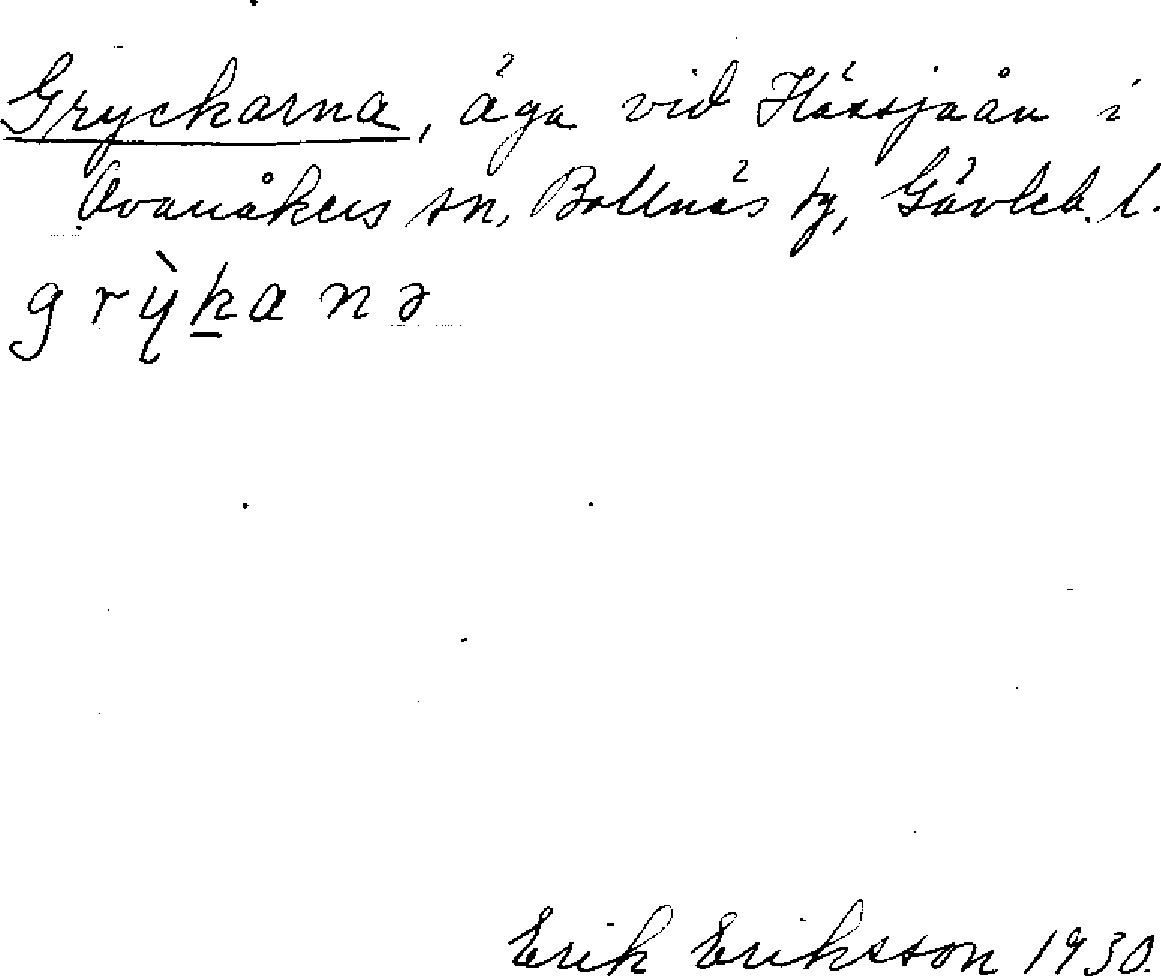 Gryckarna, äga vid Hässjaån i
Ovanåkers sn, Bollnäs tg, Gävleb. l.
grỳk̠anə
Erik Eriksson 1930.